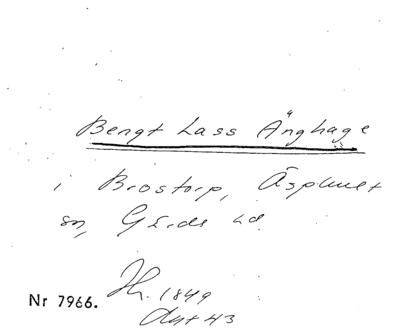 Bengt Lass Änghage
i Brostorp, Äsplunet
sn, Gärds hd
Nr 7966. Jhr. 1849
dnr 43